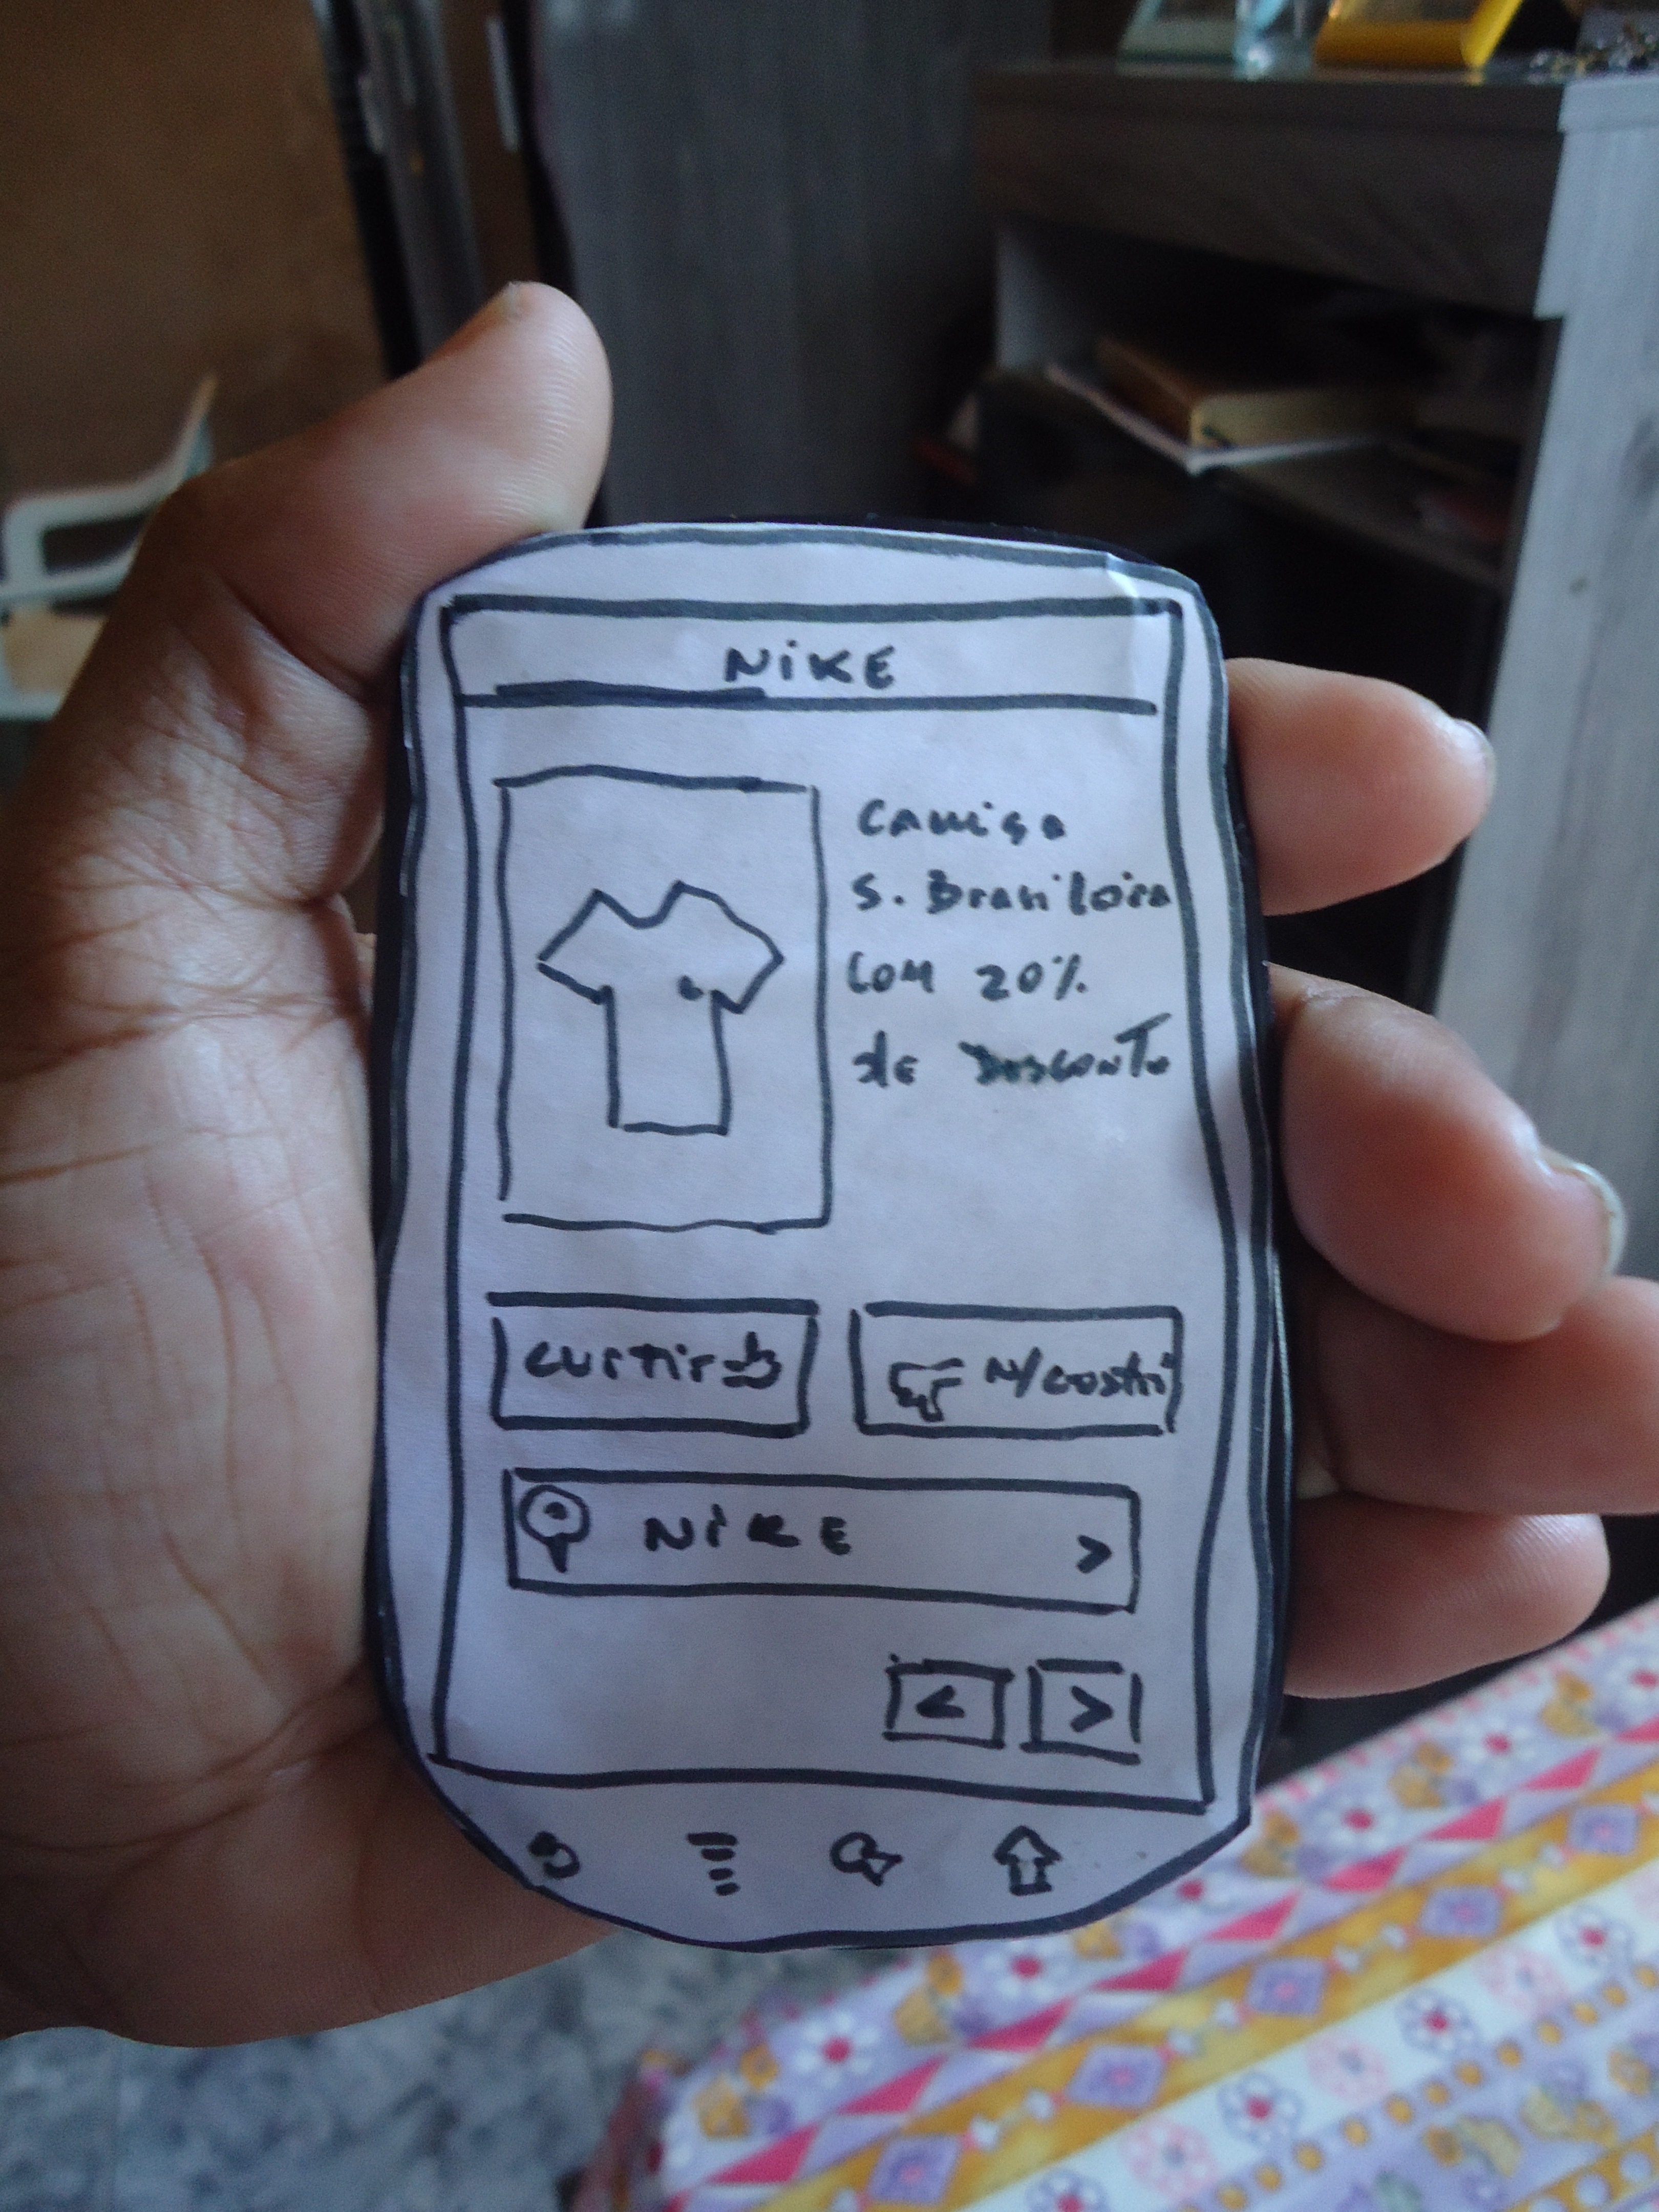 NIKE
Camisa
S. Brasileira
Com 20%
de Desconto
curtir
N/Gostei
NIKE >
< >